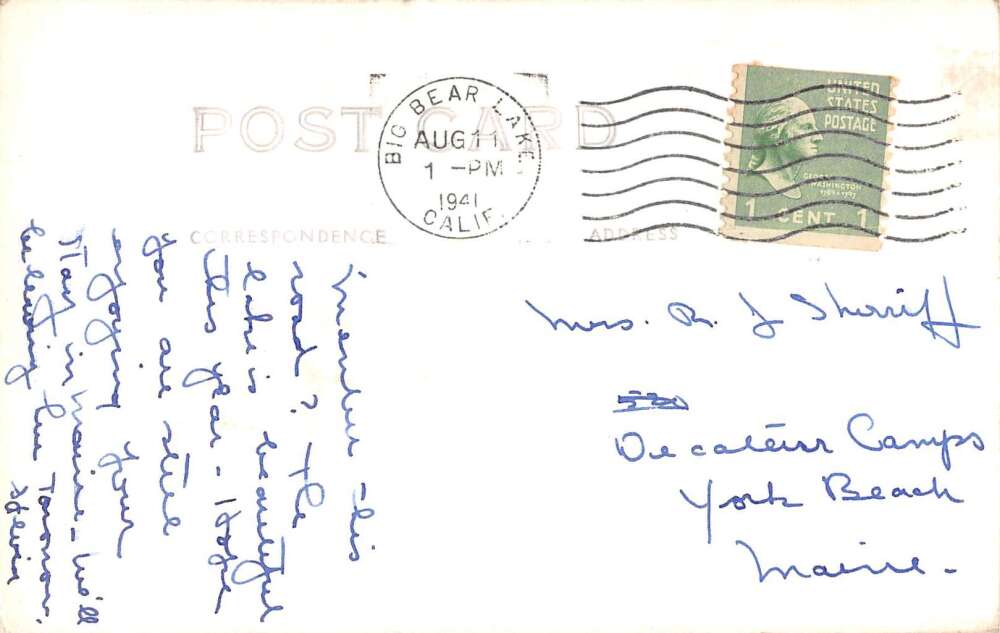 POST CARD
BIG BEAR LAKE
AUG 11
1 -PM
1941
CALIF.
UNITED
STATES
POSTAGE
GEORGE
WASHINGTON
1789-1797
1 CENT 1
CORRESPONDENCE
ADDRESS
member this
road? The
lake is beautiful
this year - Hope
you are still
enjoying your
stay in Maine - We'll
be leaving here Tomorrow.
Mrs. R. J Sherriff
520
Camps
York Beach
Maine -